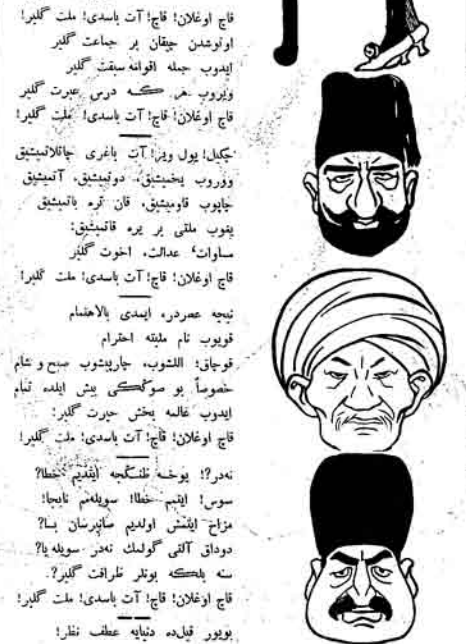 قاچ اوغلان! قاچ! آت باسدی! ملت گلیر!
اوتوشدن چیقان بر جماعت گلیر
ایدوب جمله اقوامه سبقت گلیر
ویروب هر کسه درس عبرت گلیر
قاچ اوغلان! قاچ! آت باسدی! ملت گلیر!
چکیل! یول ویر! آت باغری چاتلاتمیشیق
ووروب یخمیشیق، دوتمیشیق، آتمیشیق
چاپوب قاومیشیق، قان تره باتمیشیق
یغوب ملتی بر یره قاتمیشیق:
مساوات، عدالت، اخوت گلیر
قاچ اوغلان! قاچ! آت باسدی! ملت گلیر!
نیچه عصردر، ایمدی بالاهتمام
قویوب نام ملیته احترام
قوچاق! اللشوب، چارپیشوب صبح و شام
خصوصاً بو صوڭکی بیش ایلده تمام
ایدوب عالمه بخش حیرت گلیر!
قاچ اوغلان! قاچ! آت باسدی! ملت گلیر!
نه‌در؟! یوخسه ظنڭجه ایتدیم خطا؟
سوس! ایتم خطا! سویله‌مم نابجا!
مزاح ایتمش اولدیم صانیرسان بڭا؟
دوداق آلتی گولمك نه‌در سویله یا؟
سنه بلکه بونلر ظرافت گلیر؟
قاچ اوغلان! قاچ! آت باسدی! ملت گلیر!
بویور قیل‌ده دنیایه عطف نظر!